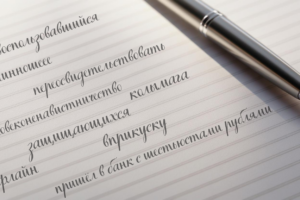 воспользовавшийся
длинношеее
пересвидетельствовать
человеконенавистничество колымага
защищающихся вприкуску
офлайн пришел в банк с шестьюстами рублями